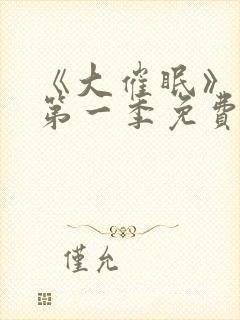 《大催眠》
第一季免費
僅允